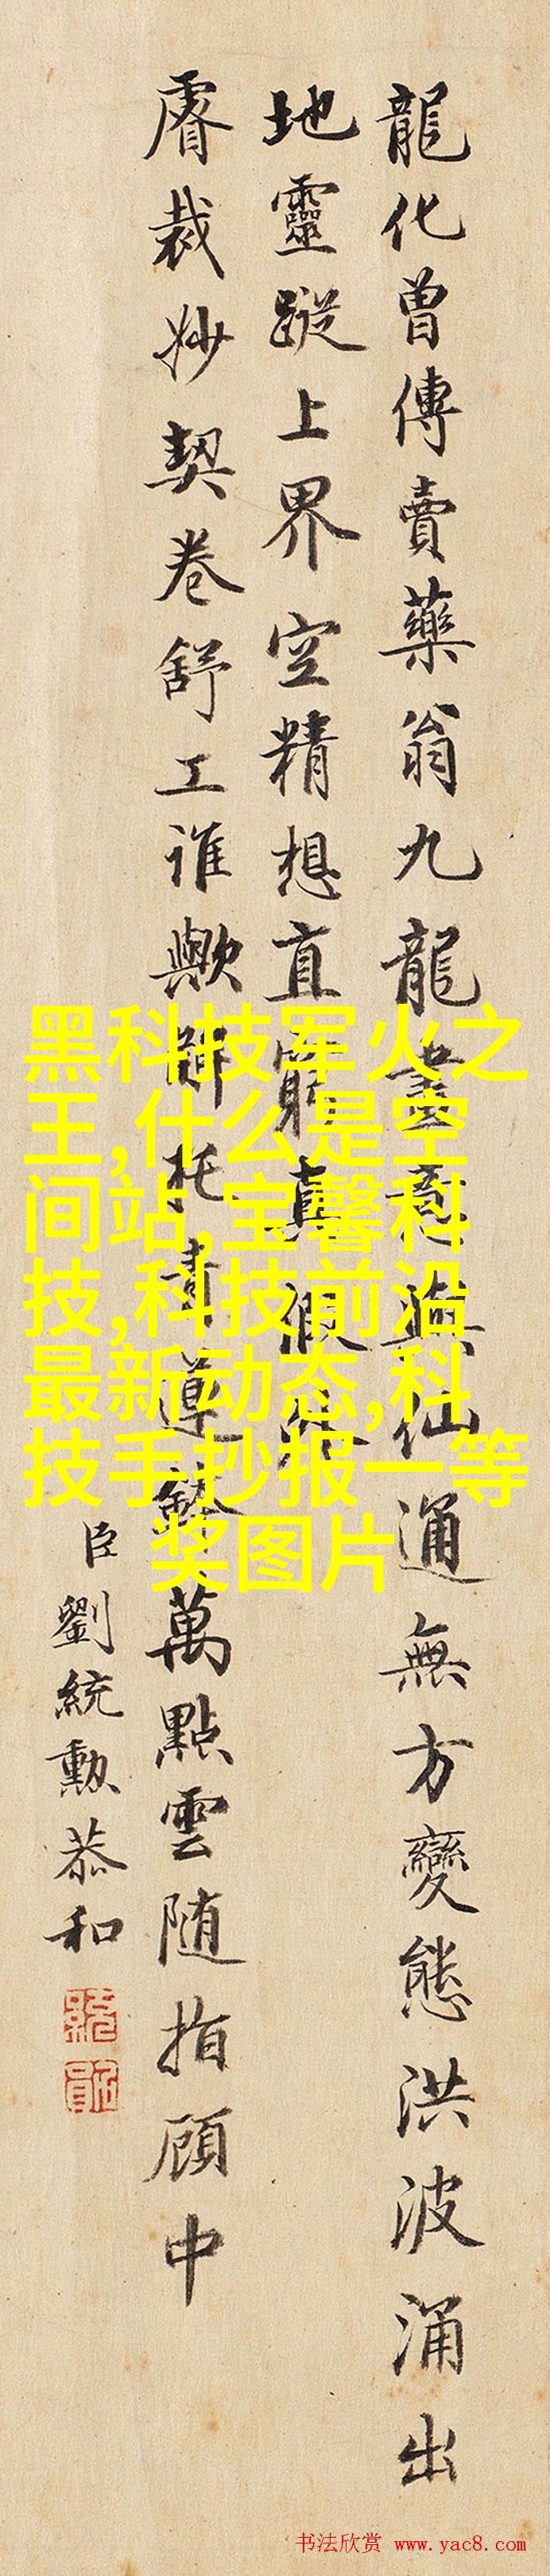 龍化曾傳賣藥翁九龍畫意與仙通無方變態洪波涌出
地靈蹤上界空精想直窮真假外
睿裁妙契卷舒工誰歟辭托青蓮錄萬點雲随指顧中
臣劉統勳恭和
黑科技军火之
王,什么是空
间站,宝馨科
技,科技前沿
最新动态,科
技手抄报一等
奖图片
书法欣赏 www.yac8.com